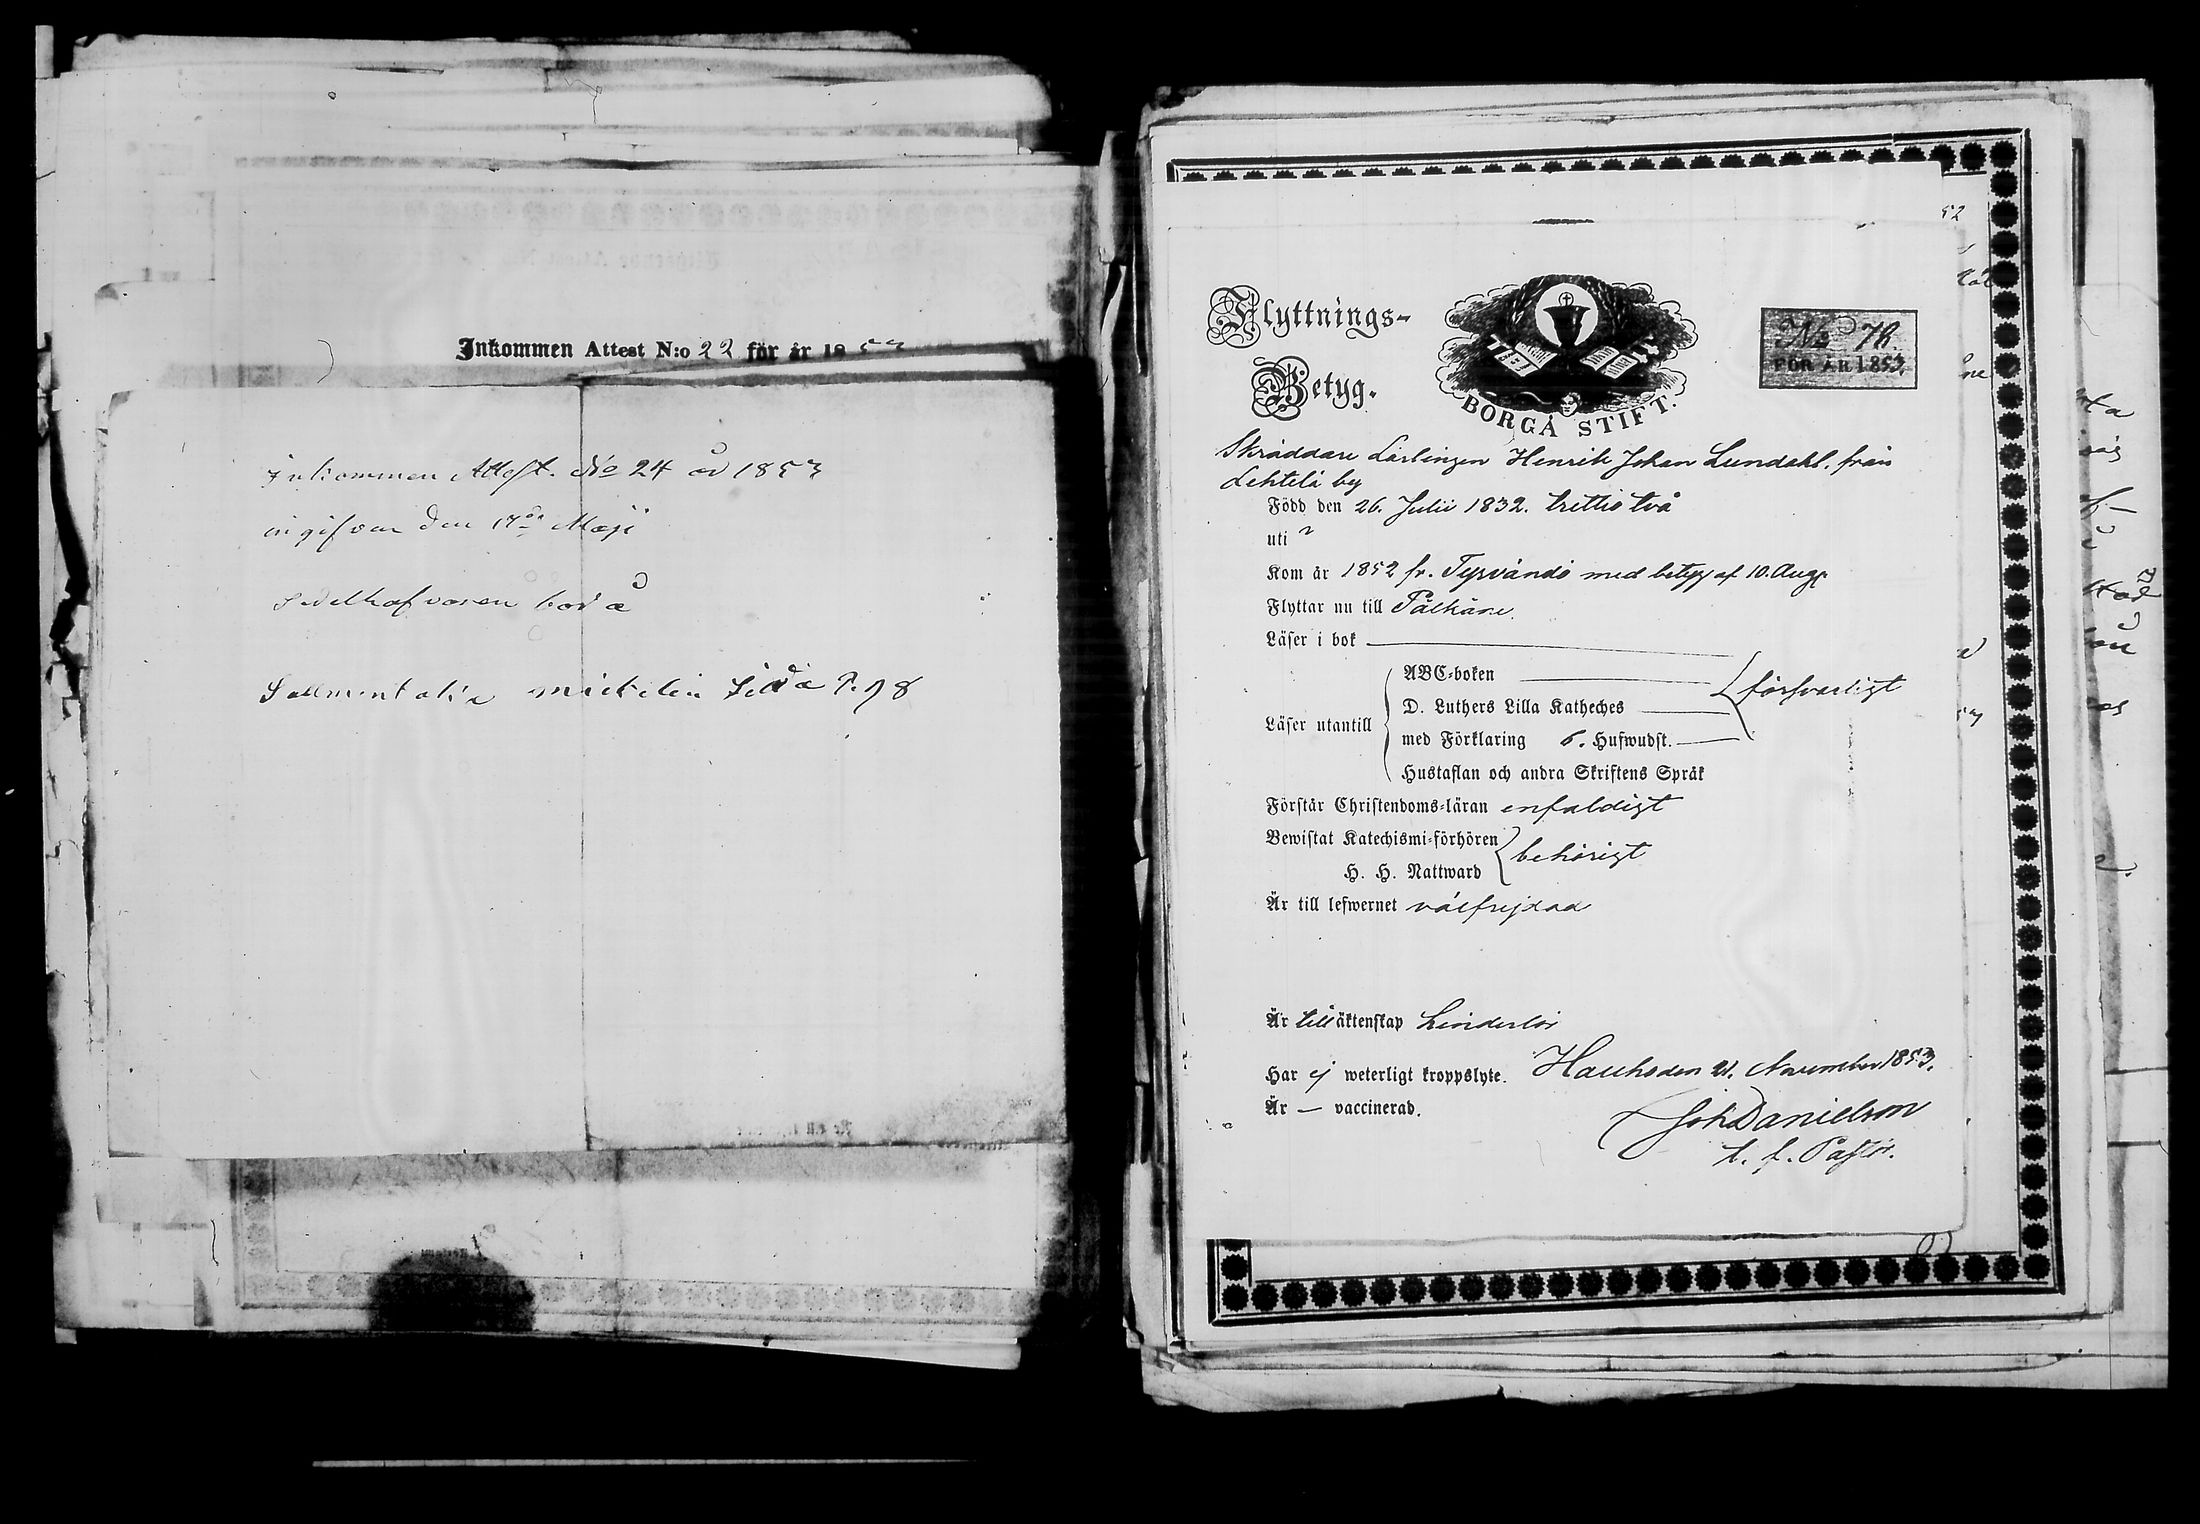 Inkommen Attest N:o 22 för år 1853
Inkommen Attest. No 24 år 1853
ingifven den 17de Maji
Flyttnings-
Betyg.
BORGÅ STIFT.
No 78.
FÖR ÅR 1853.
Skräddare Lärlingen Henrik Johan Lundahl, från
Lehtelä by
Född den 26. Julii 1832. trettio två
uti
Kom år 1852 fr. Tyrvändö med betyg af 10. Aug.
Flyttar nu till Pälkäne.
Läser i bok
ABC-boken
D. Luthers Lilla Katheches
försvarligt
Läser utantill
med Förklaring 6. Hufwudst.
Hustaflan och andra Skriftens Språk
Förstår Christendoms-läran enfaldigt
Bewistat Katechismi-förhören
behörigt
H. H. Nattward
Är till lefwernet välfrejdad
Är till äktenskap hinderlös
Har ej weterligt kroppslyte. Hauho den 21. November 1853.
Är — vaccinerad.
Joh Danielson
t. f. Pastor.